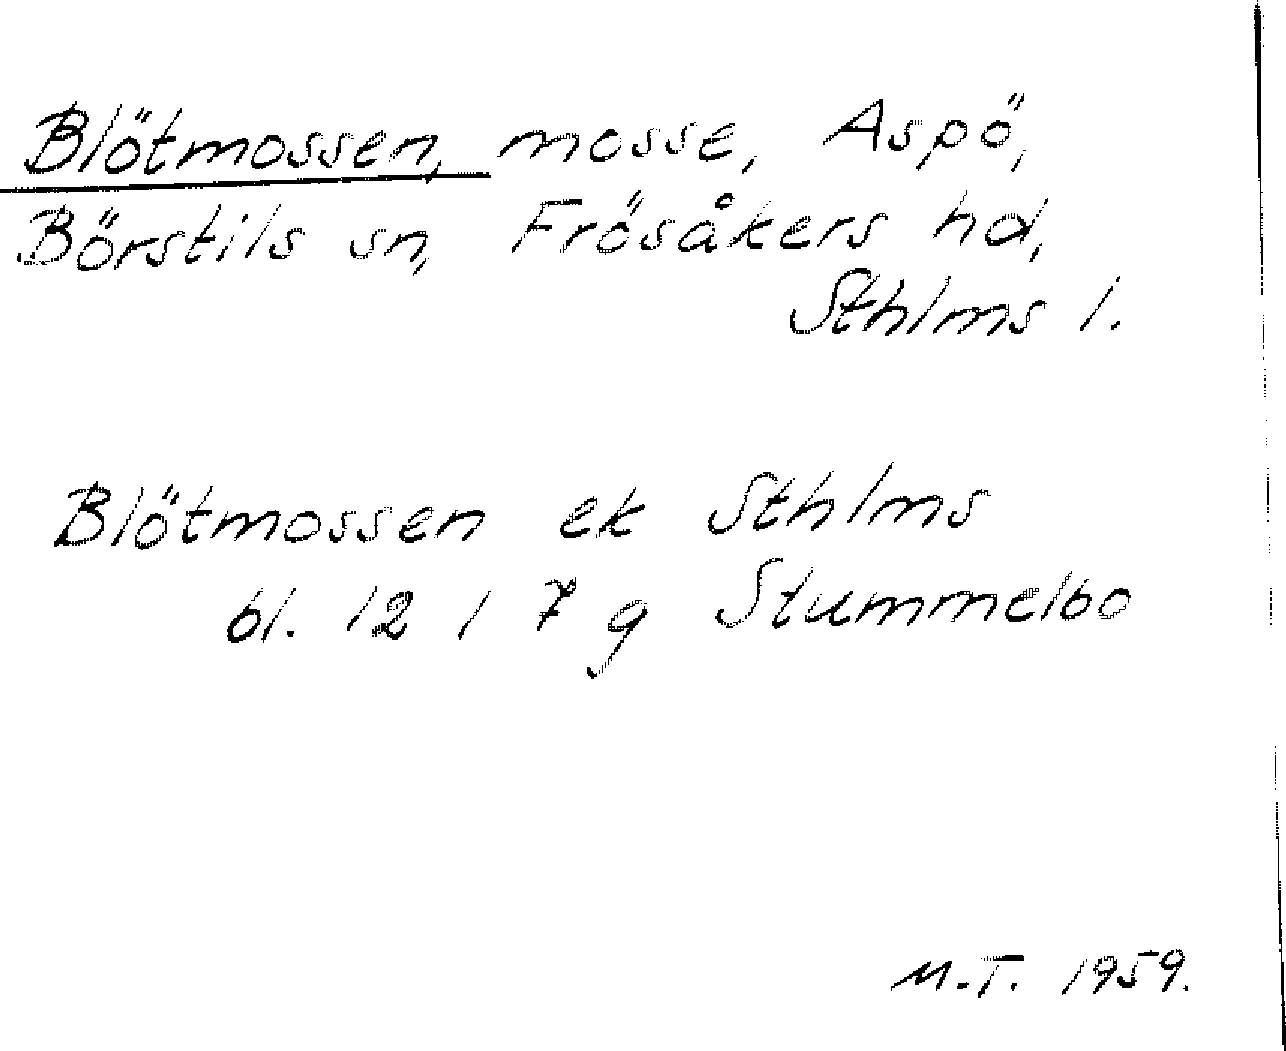 Blötmossen, mosse, Aspö,
Börstils sn, Frösåkers hd,
Sthlms l.
Blötmossen ek Sthlms
bl. 12 1 7 g Stummelbo
M.T. 1959.